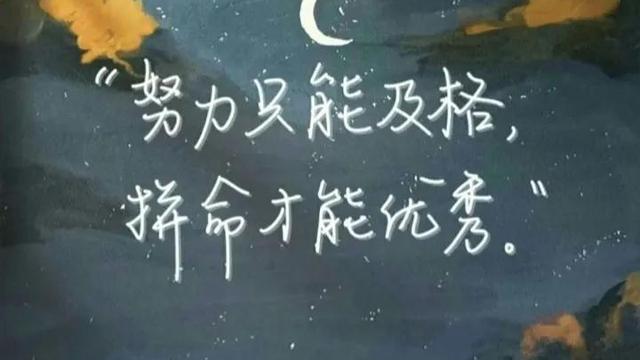 “努力只能及格,
拼命才能优秀。”